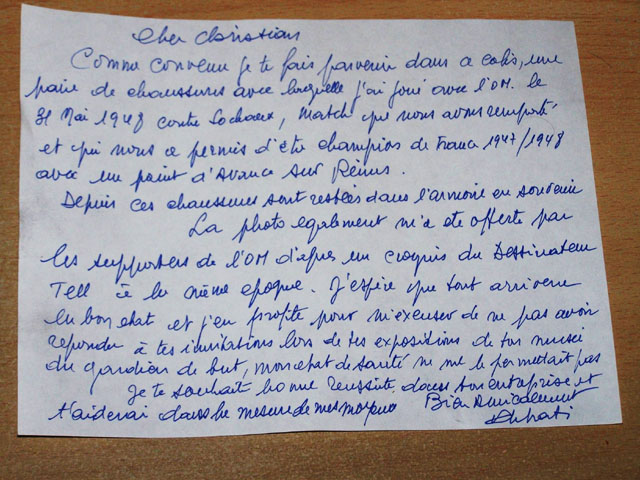 Cher Christian
Comme convenu je te fais parvenir dans ce colis, une
paire de chaussures avec laquelle j'ai joué avec l'OM. le
31 Mai 1948 contre Sochaux, Match que nous avons remporté
et qui nous a permis d'être champion de France 1947/1948
avec un point d'avance sur Reims.
Depuis ces chaussures sont restées dans l'armoire en souvenir
La photo egalement m'a été offerte par
les supporters de l'OM d'après un croquis du Dessinateur
Tell à la même epoque. J'espère que tout arrivera
en bon etat et j'en profite pour m'excuser de ne pas avoir
repondu à tes invitations lors de tes expositions de ton musée
du gardien de but, mon etat de santé ne me le permettait pas
Je te souhaite bonne reussite dans ton entreprise et
t'aiderai dans la mesure de mes moyens Bien Amicalement